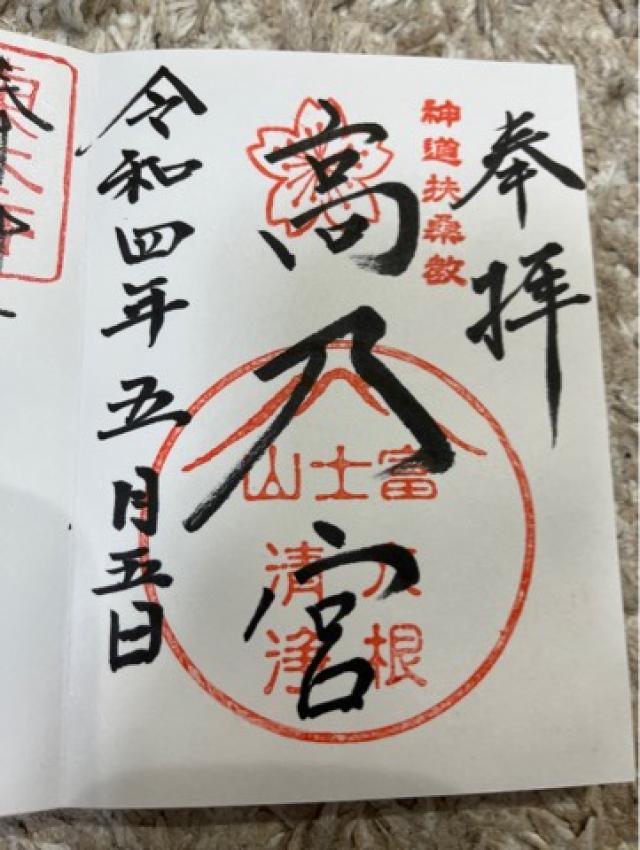 奉拝
神道扶桑教
高乃宮
富士山
六根
清浄
令和四年五月五日